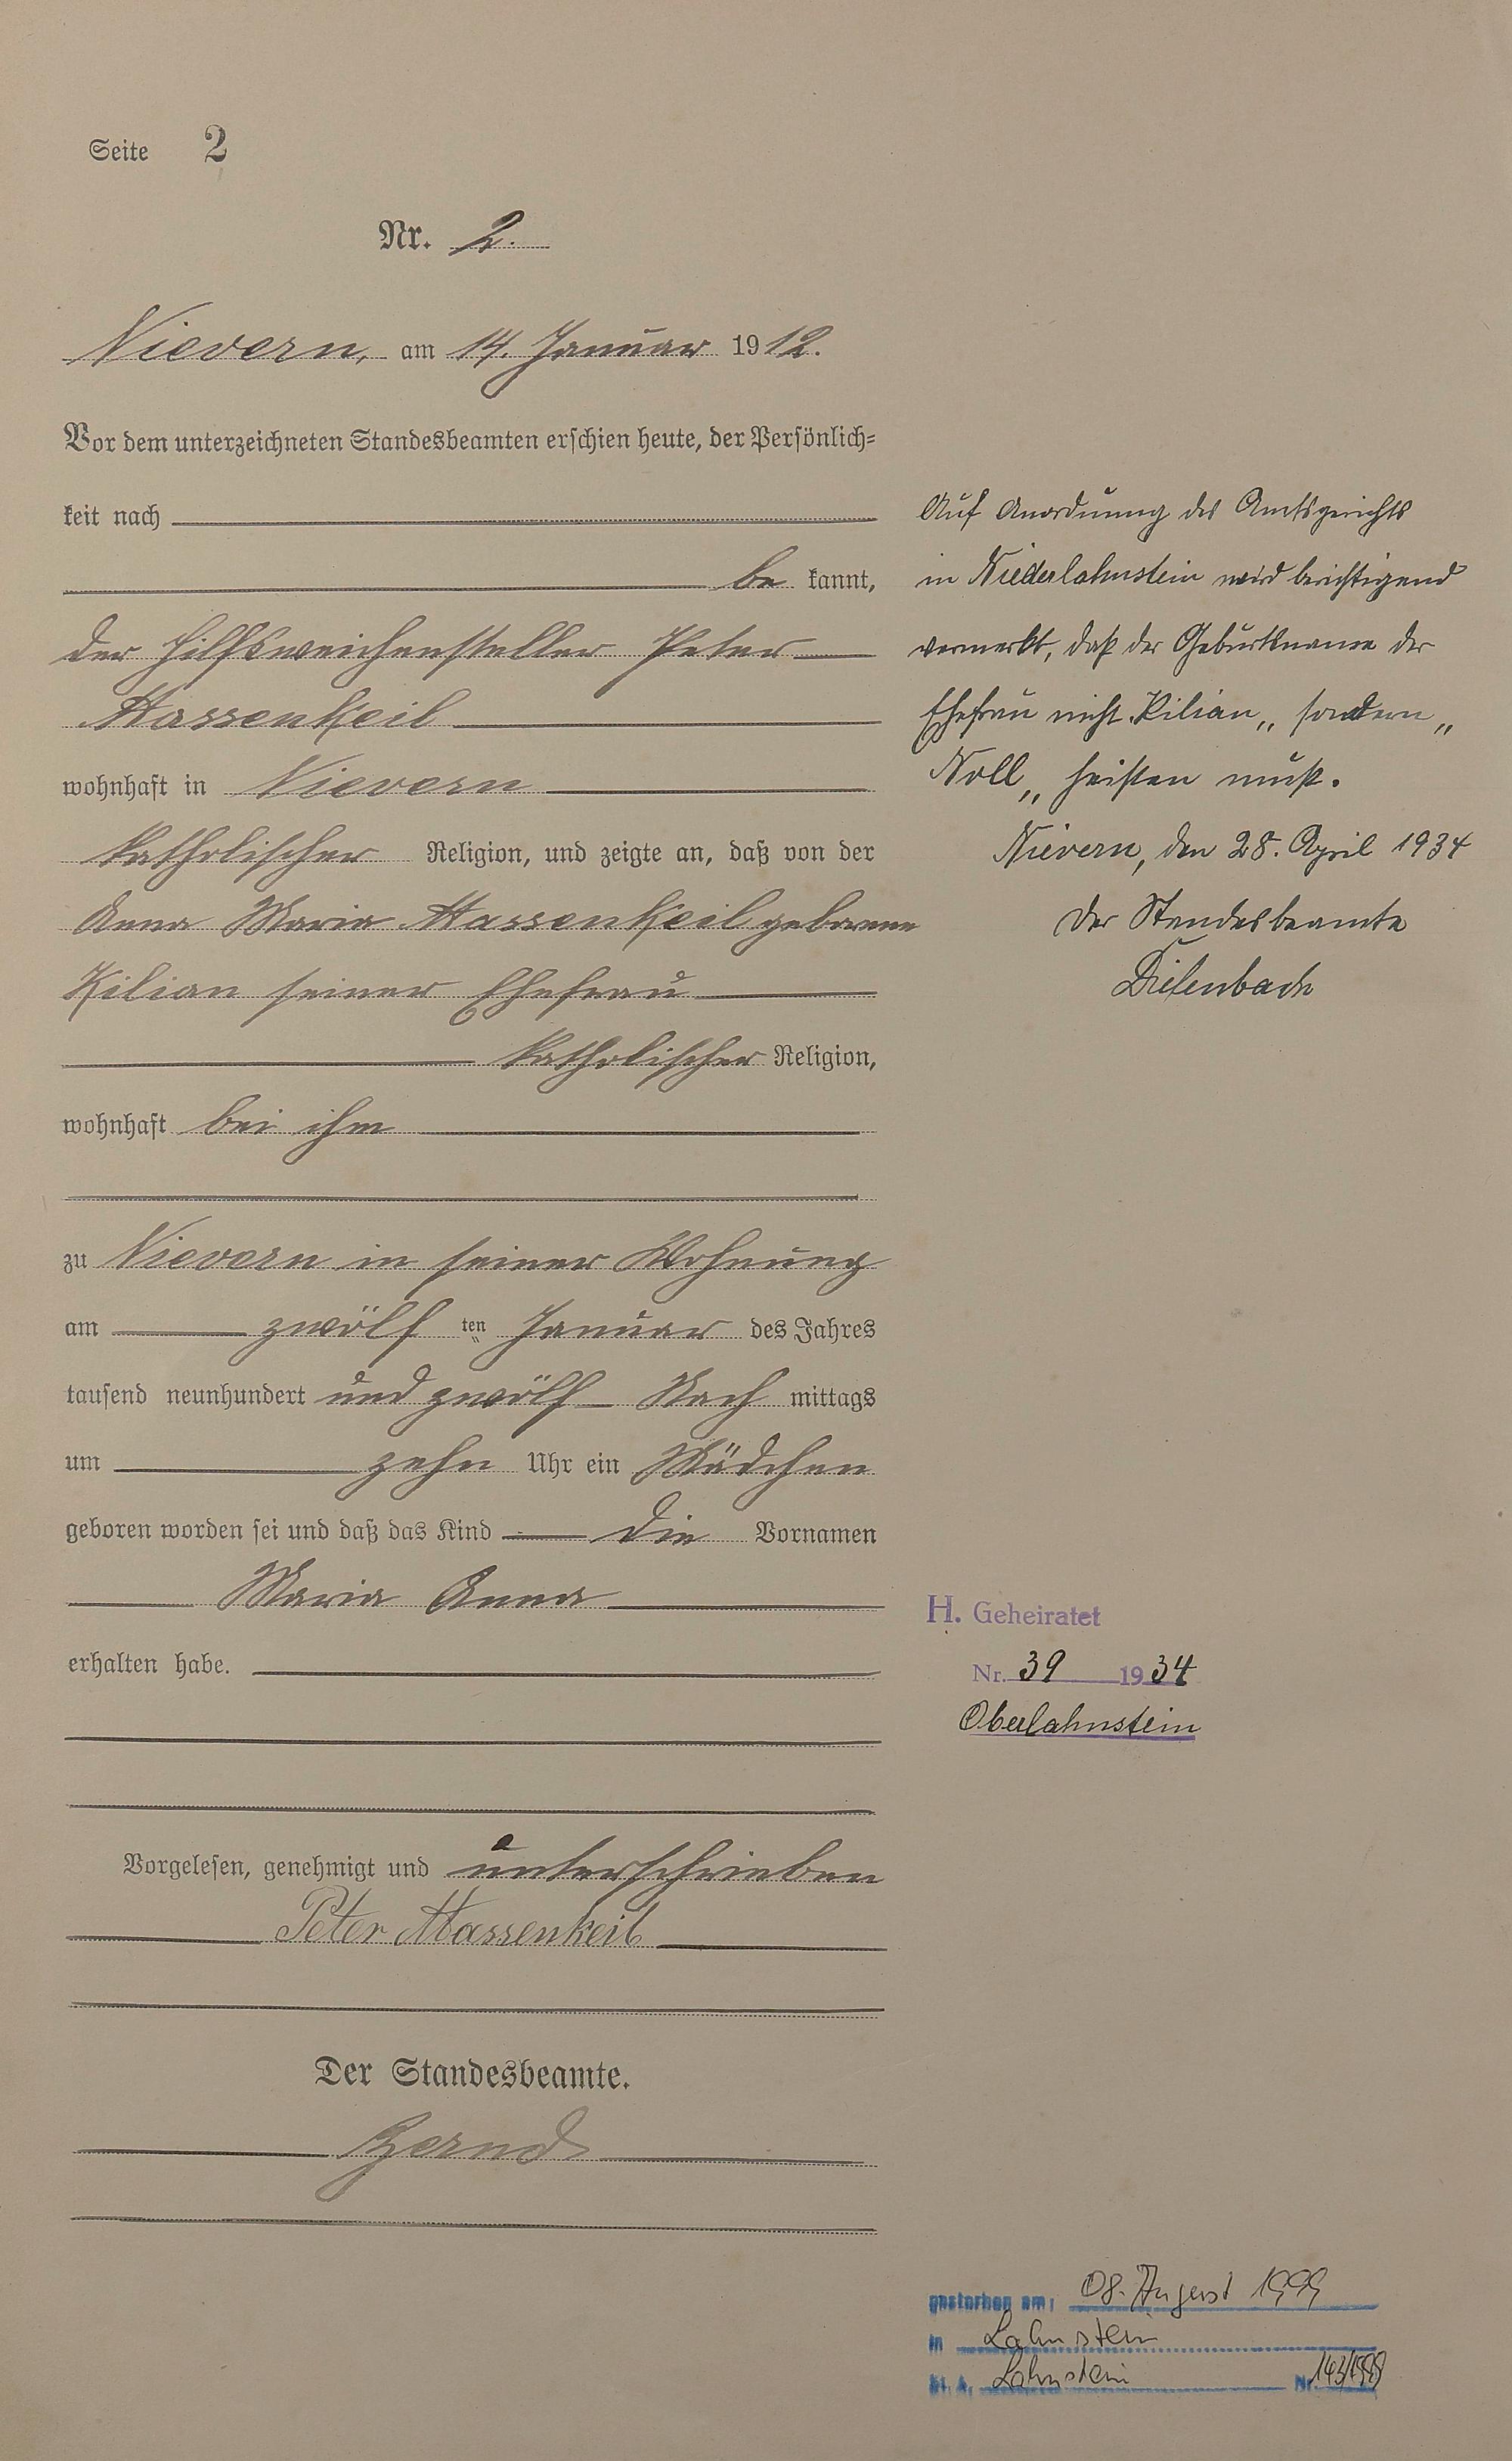 Seite 2
Nr. 2.
Nievern, am 14. Januar 1912.
Vor dem unterzeichneten Standesbeamten erschien heute, der Persönlich-
keit nach
be kannt,
der Hilfsweichensteller Peter
Massenkeil
wohnhaft in Nievern
katholischer Religion, und zeigte an, daß von der
Anna Maria Massenkeil geborene
Kilian seiner Ehefrau
katholischer Religion,
wohnhaft bei ihm
zu Nievern in seiner Wohnung
am zwölf ten Januar des Jahres
tausend neunhundert und zwölf Nach mittags
um zehn Uhr ein Mädchen
geboren worden sei und daß das Kind die Vornamen
Maria Anna
erhalten habe.
Vorgelesen, genehmigt und unterschrieben
Peter Massenkeil
Der Standesbeamte.
Auf Anordnung des Amtsgerichts
in Niederlahnstein wird berichtigend
vermerkt, daß der Geburtsname der
Ehefrau nicht Kilian„ sondern „
Noll„ heißen muß.
Nievern, den 28. April 1934
Der Standesbeamte
Diefenbach
H. Geheiratet
Nr. 39 1934
Oberlahnstein
gestorben am: 08. August 1999
in Lahnstein
St. A. Lahnstein Nr. 143/1999